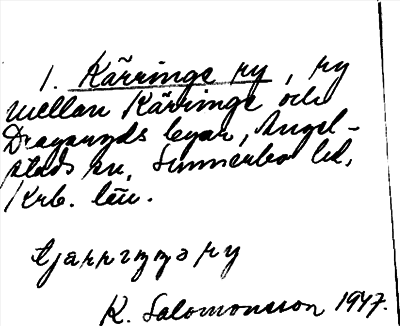 1. Kärringe ry, ry
mellan Kärringe och
Draganryds byar, Angel-
stads sn, Sunnerbo hd,
Krb. län.
tjärrıŋgəry
K. Salomonsson 1947.